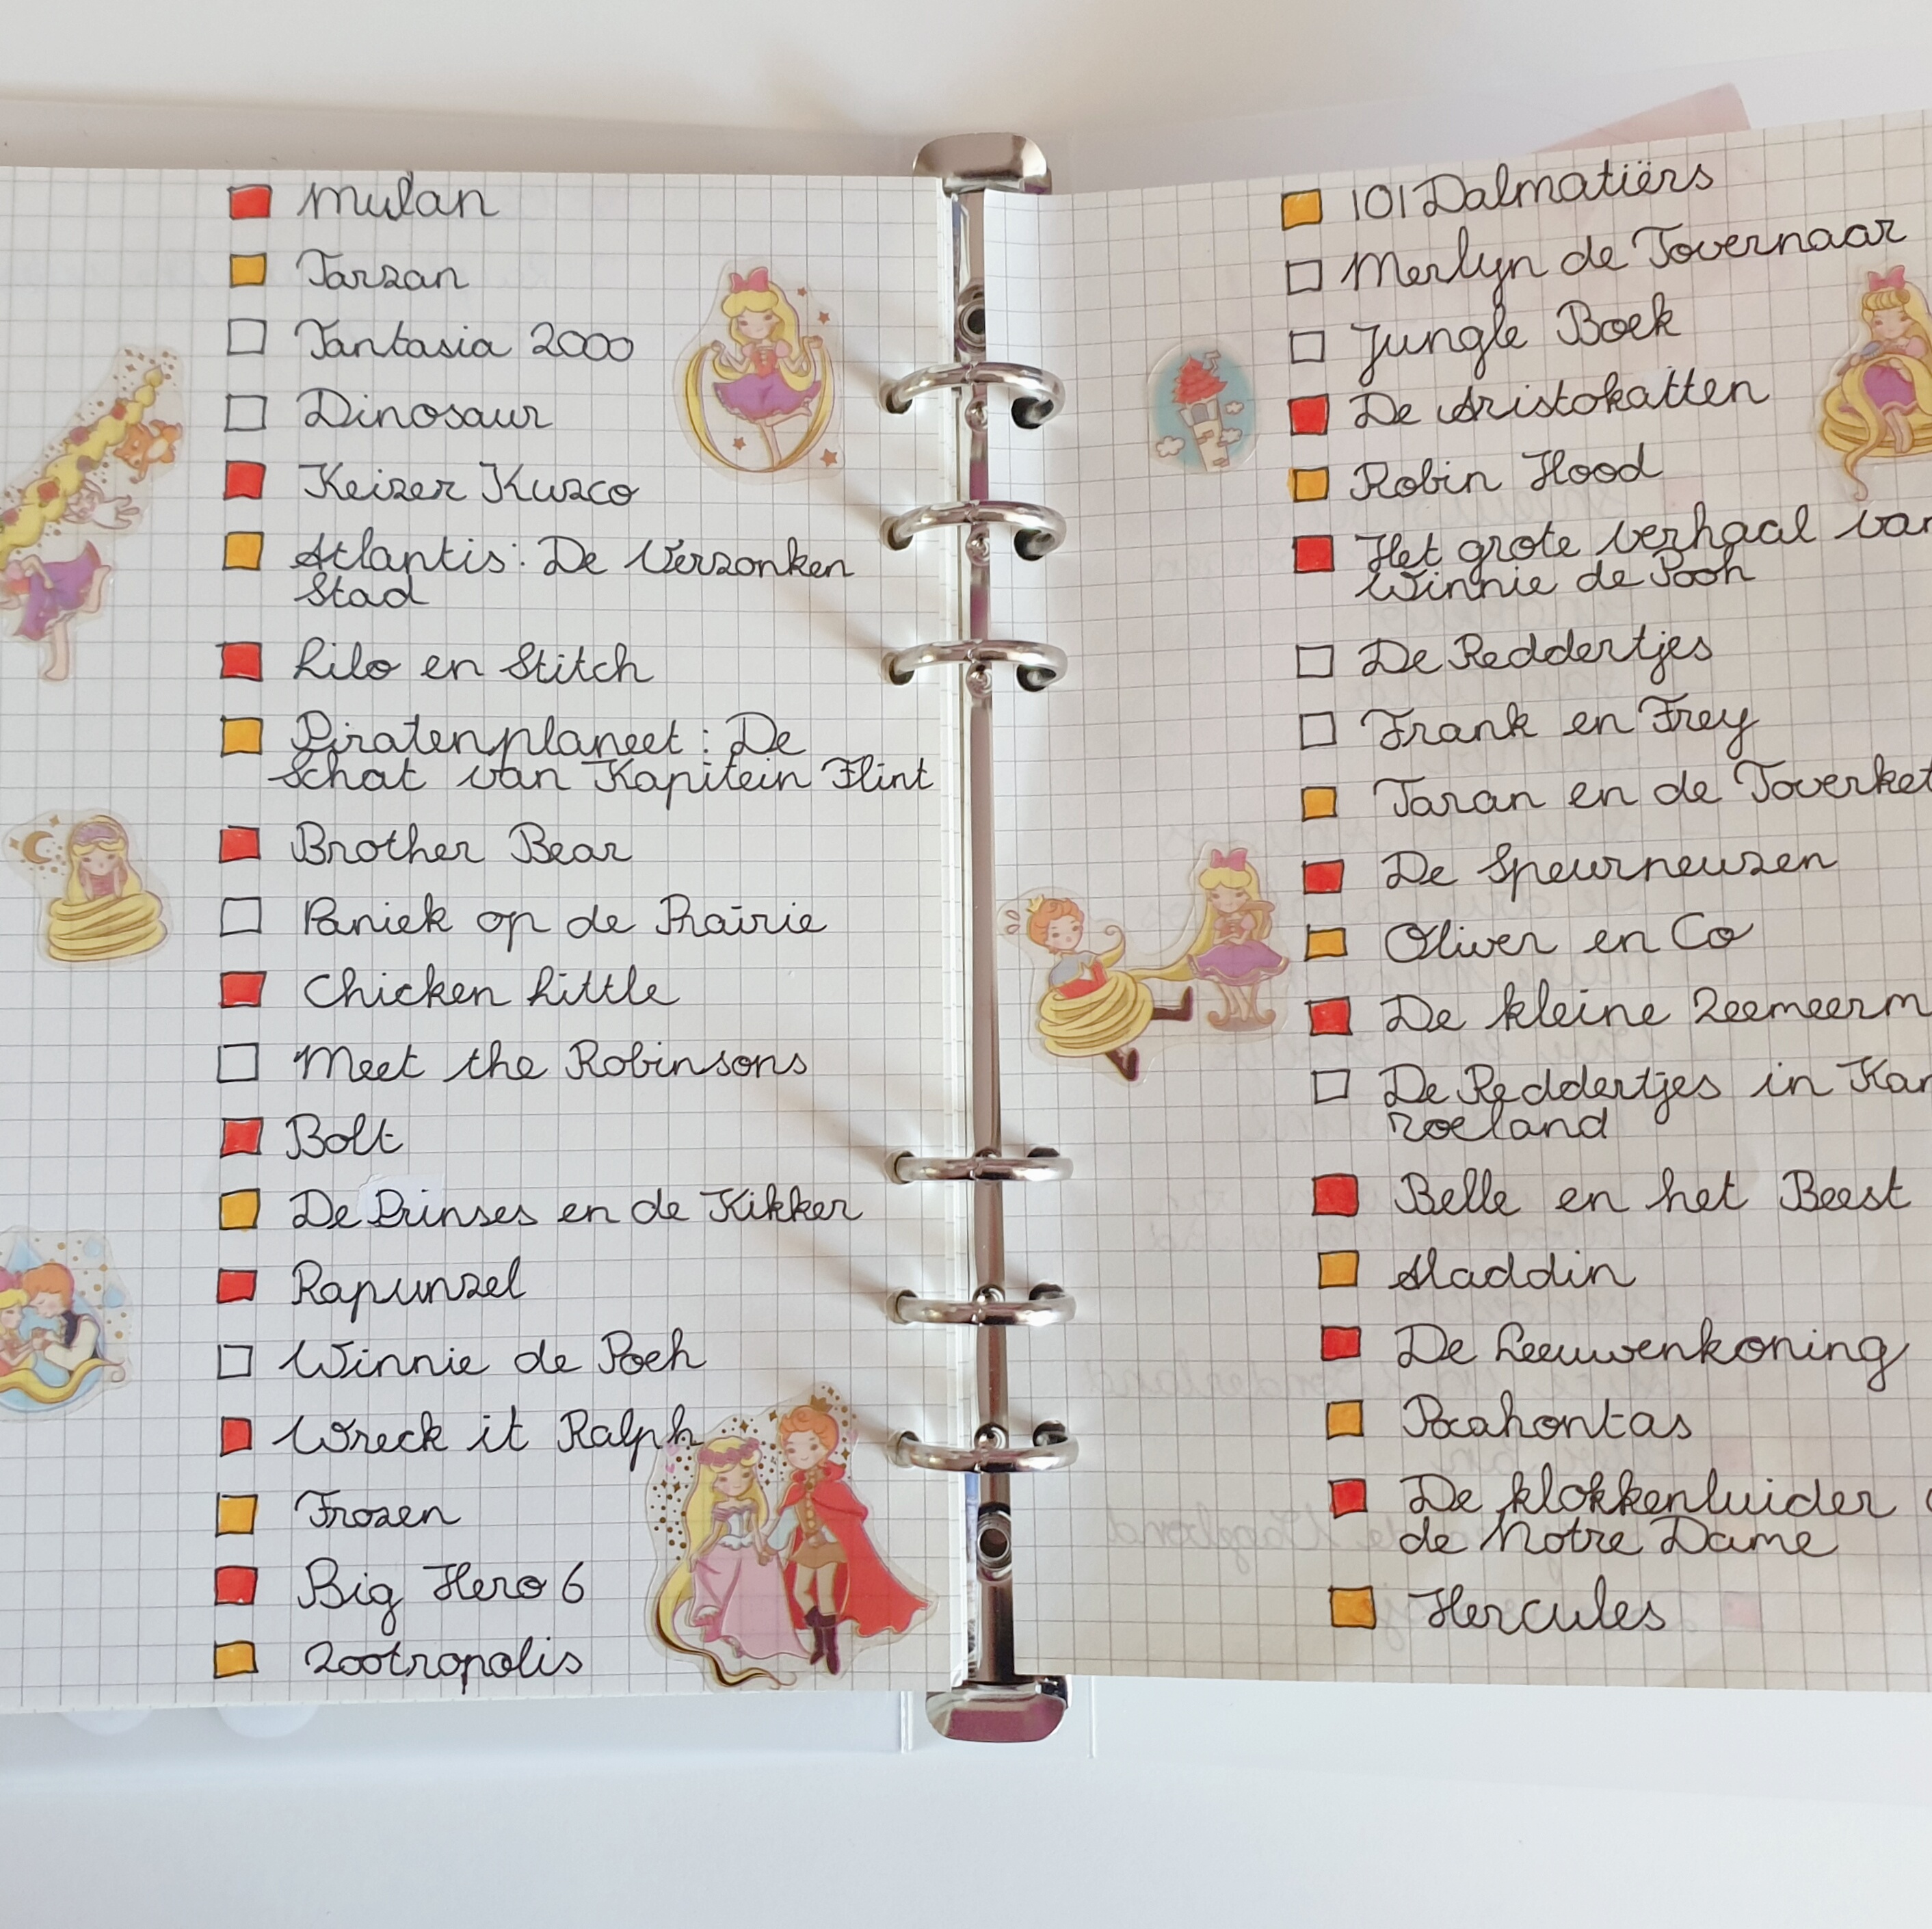 Mulan
Tarzan
Fantasia 2000
Dinosaur
Keizer Kuzco
Atlantis: De Verzonken
Stad
Lilo en Stitch
Piratenplaneet: De
Schat van Kapitein Flint
Brother Bear
Paniek op de Prairie
Chicken Little
Meet the Robinsons
Bolt
De Prinses en de Kikker
Rapunzel
Winnie de Poeh
Wreck it Ralph
Frozen
Big Hero 6
Zootropolis
101 Dalmatiërs
Merlyn de Tovernaar
Jungle Boek
De Aristokatten
Robin Hood
Het grote verhaal van
Winnie de Pooh
De Reddertjes
Frank en Frey
Taran en de Toverket
De Speurneuzen
Oliver en Co
De kleine Zeemeerm
De Reddertjes in Kan
roeland
Belle en het Beest
Aladdin
De Leeuwenkoning
Pocahontas
De klokkenluider
de Notre Dame
Hercules